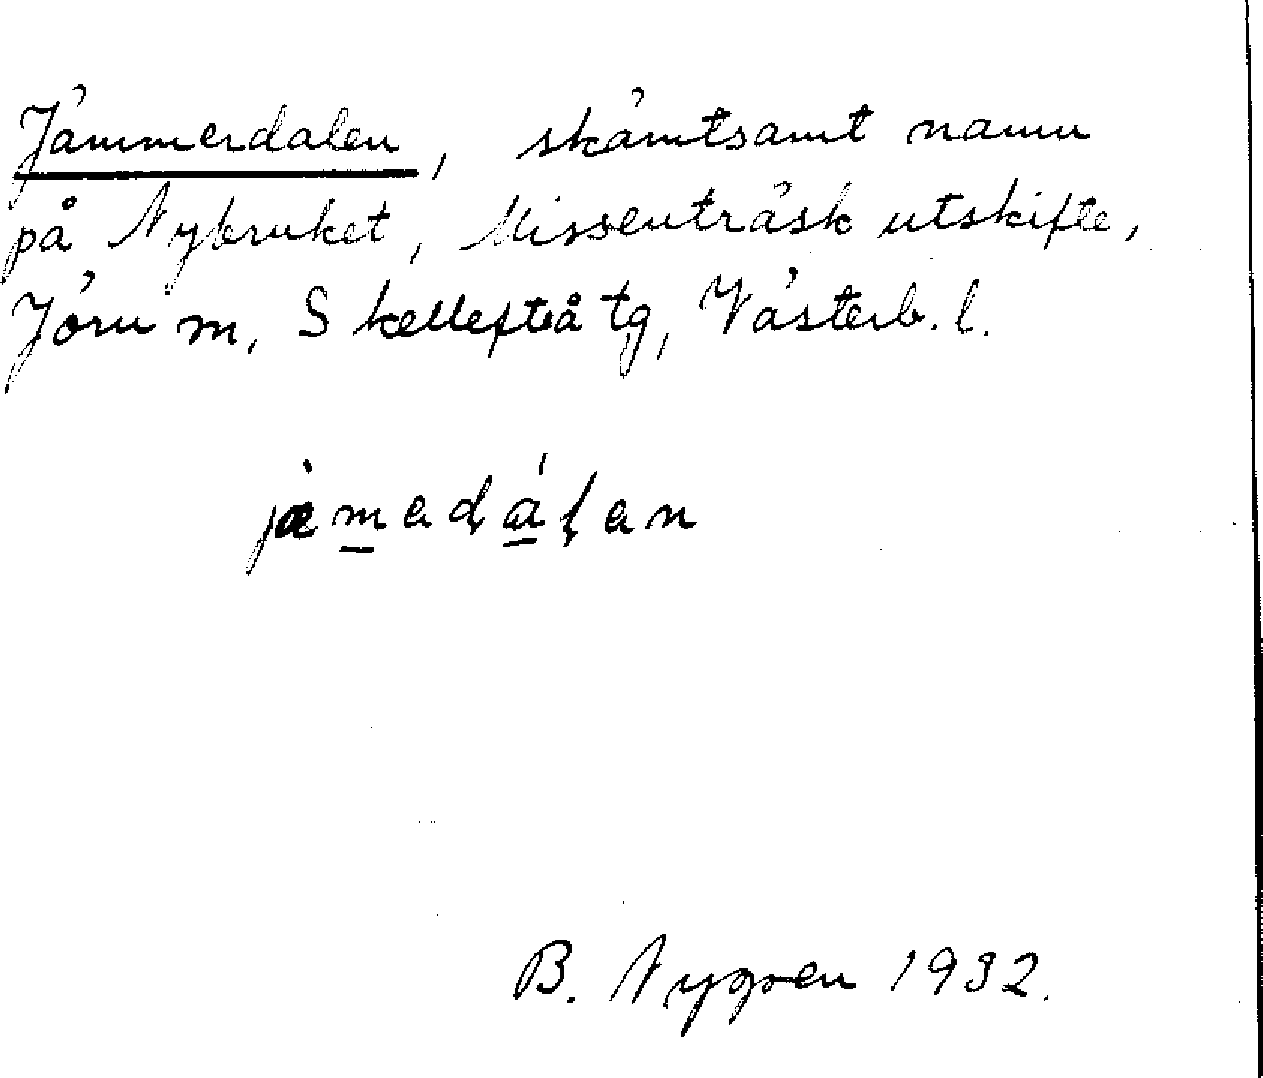 Jämmerdalen, skämtsamt namn
på Nybruket, Missenträsk utskifte,
Jörn sn, Skellefteå tg, Västerb. l.
jæmadálan
B. Nygren 1932.